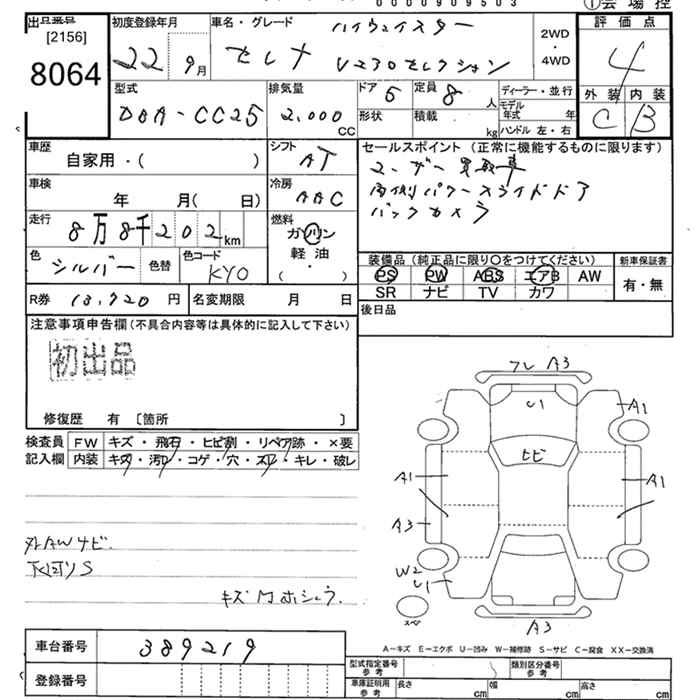 0000909503
①会場控
出品番号
[2156]
8064
初度登録年月
22 9月
車名・グレード
ハイウェイスター
セレナ Vエアロセレクション
2WD
・
4WD
評価点
4
外装 内装
C B
型式
DBA-CC25
排気量
2,000
CC
ドア 5
定員 8 人
形状
積載 kg
ディーラー・並行
モデル
年式 年
ハンドル 左・右
車歴
自家用・( )
シフト
AT
セールスポイント(正常に機能するものに限ります)
ユーザー買取車
両側パワースライドドア
バックカメラ
車検
年 月( 日)
冷房
AAC
走行
8万8千202km
燃料
ガソリン
軽油
( ・ )
色
シルバー
色替
色コード
KY0
装備品(純正品に限り○をつけてください)
PS PW ABS エアB AW
SR ナビ TV カワ
新車保証書
有・無
R券 13,720円
名変期限 月 日
後日品
注意事項申告欄(不具合内容等は具体的に記入して下さい)
初出品
修復歴 有 〔箇所 〕
検査員
記入欄
FW キズ・飛石・ヒビ割・リペア跡・×要
内装 キズ・汚れ・コゲ・穴・スレ・キレ・破レ
フレ A3
U1
A1
ヒビ
A1
A1
A3
W2
U1
スペア
A3
外AWサビ
下回りS
車台番号
389219
登録番号
A-キズ E-エクボ U-凹み W-補修跡 S-サビ C-腐食 XX-交換済
型式指定番号
参考
類別区分番号
参考
車庫証明用
参考
長さ cm
幅 cm
高さ cm